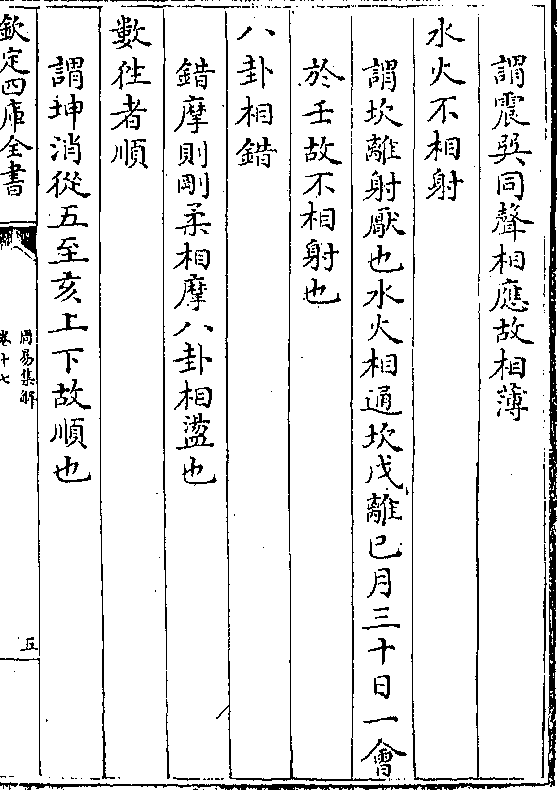 謂震巽同聲相應故相薄
水火不相射
謂坎離射厭也水火相通坎戊離已月三十日一會
於壬故不相射也
八卦相錯
錯摩則剛柔相摩八卦相盪也
數徃者順
謂坤消從五至亥上下故順也
欽定四庫全書
周易集解
卷十七
五